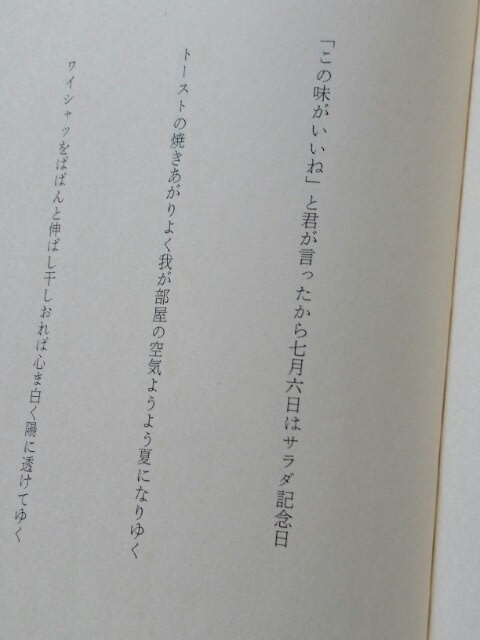 「この味がいいね」と君が言ったから七月六日はサラダ記念日
トーストの焼きあがりよく我が部屋の空気ようよう夏になりゆく
ワイシャツをぱぱんと伸ばし干しおれば心ま白く陽に透けてゆく